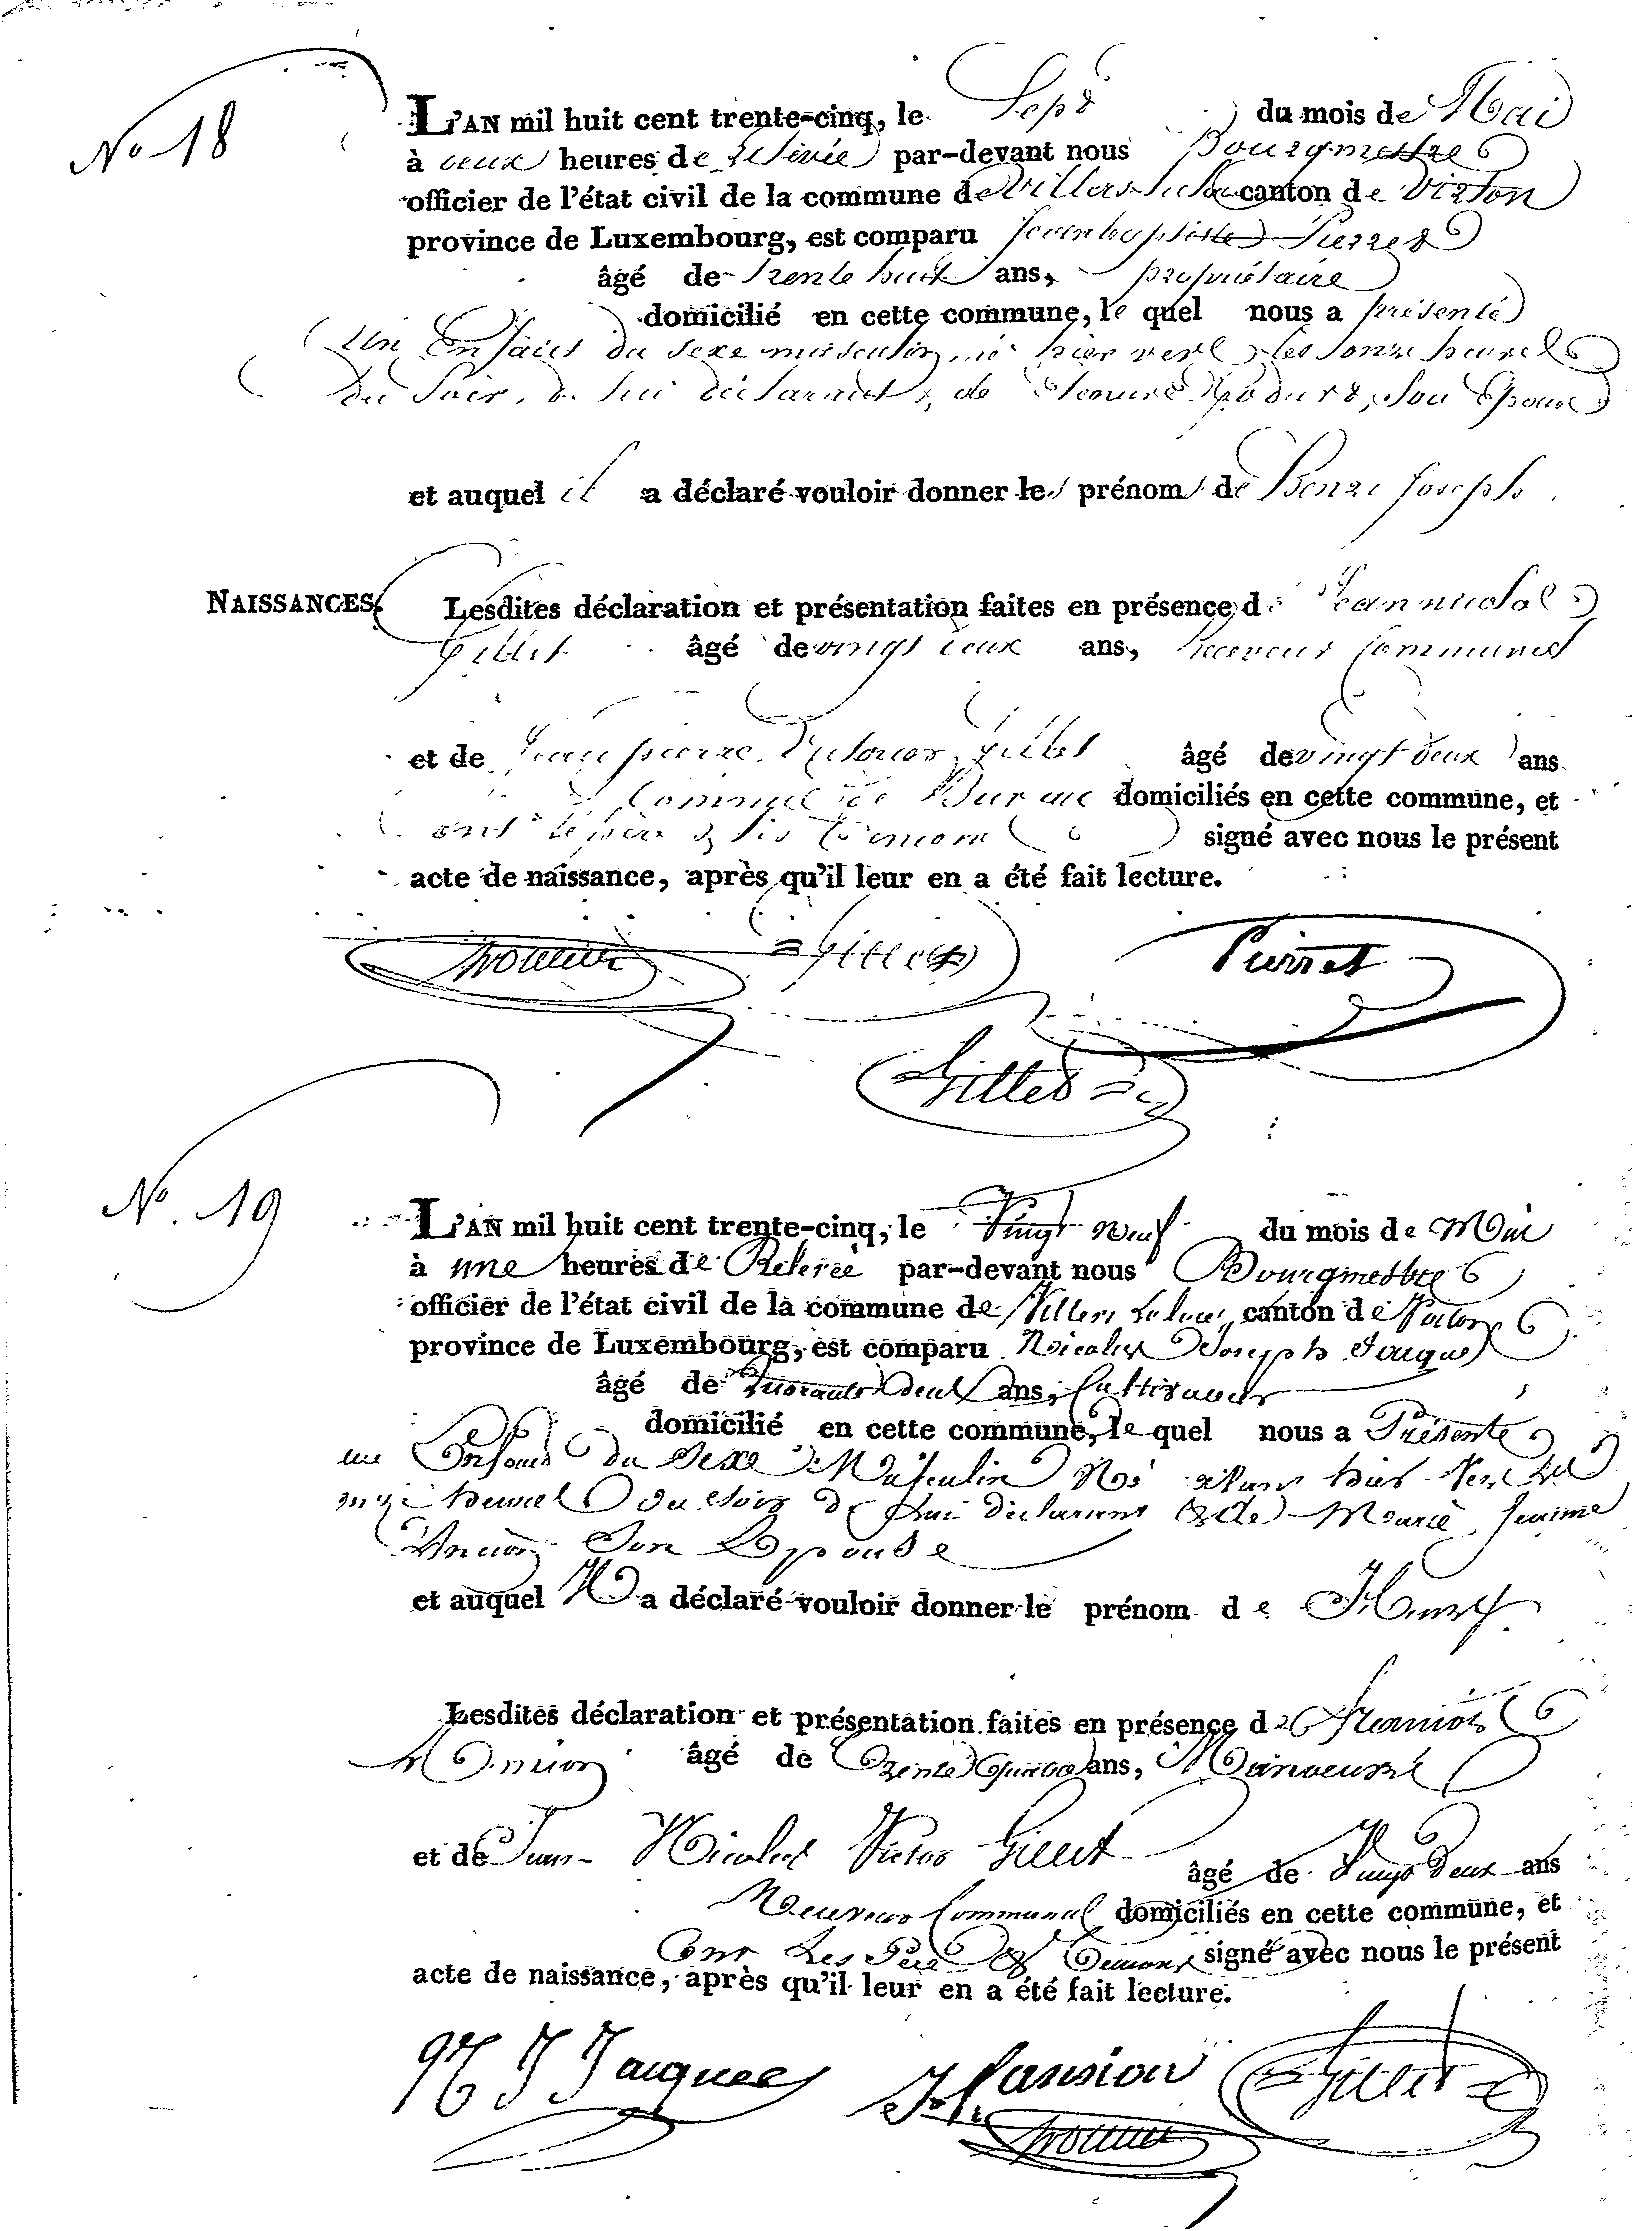 No 18
L'AN mil huit cent trente-cinq, le Sept du mois de Mai
à deux heures de Relevée par-devant nous Bourgmestre
officier de l'état civil de la commune de Villers la Loue canton de Virton
province de Luxembourg, est comparu Jean baptiste Pierret
âgé de trente huit ans, propriétaire
domicilié en cette commune, le quel nous a présenté
Un Enfant du sexe masculin né hier vers les onze heures
du Soir, de lui déclarant & de son Epouse
et auquel il a déclaré vouloir donner les prénoms de Henri Joseph
NAISSANCES. Lesdites déclaration et présentation faites en présence de Jean nicolas
Gillet âgé de vingt deux ans, Receveur Communal
et de Jean pierre Gillet âgé de vingt deux ans
Commis de Bureau domiciliés en cette commune, et
ont le père & les témoins signé avec nous le présent
acte de naissance, après qu'il leur en a été fait lecture.
Gillet Pierret
Gillet
No. 19
L'AN mil huit cent trente-cinq, le Vingt neuf du mois de Mai
à une heures de Relevée par-devant nous Bourgmestre
officier de l'état civil de la commune de Villers la loue canton de Virton
province de Luxembourg, est comparu Nicolas Joseph Jacques
âgé de quarante deux ans, Cultivateur
domicilié en cette commune, le quel nous a Présenté
un Enfant du Sexe Masculin Né avant hier vers les
onze heures du soir de lui déclarant & de Marie Jeanne
son Epouse
et auquel Il a déclaré vouloir donner le prénom de Henry
Lesdites déclaration et présentation faites en présence de François
âgé de trente quatre ans, Manoeuvre
et de Jean Nicolas Victor Gillet âgé de Vingt Deux ans
Receveur Communal domiciliés en cette commune, et
ont Les Père & témoins signé avec nous le présent
acte de naissance, après qu'il leur en a été fait lecture.
N J Jacques Gillet